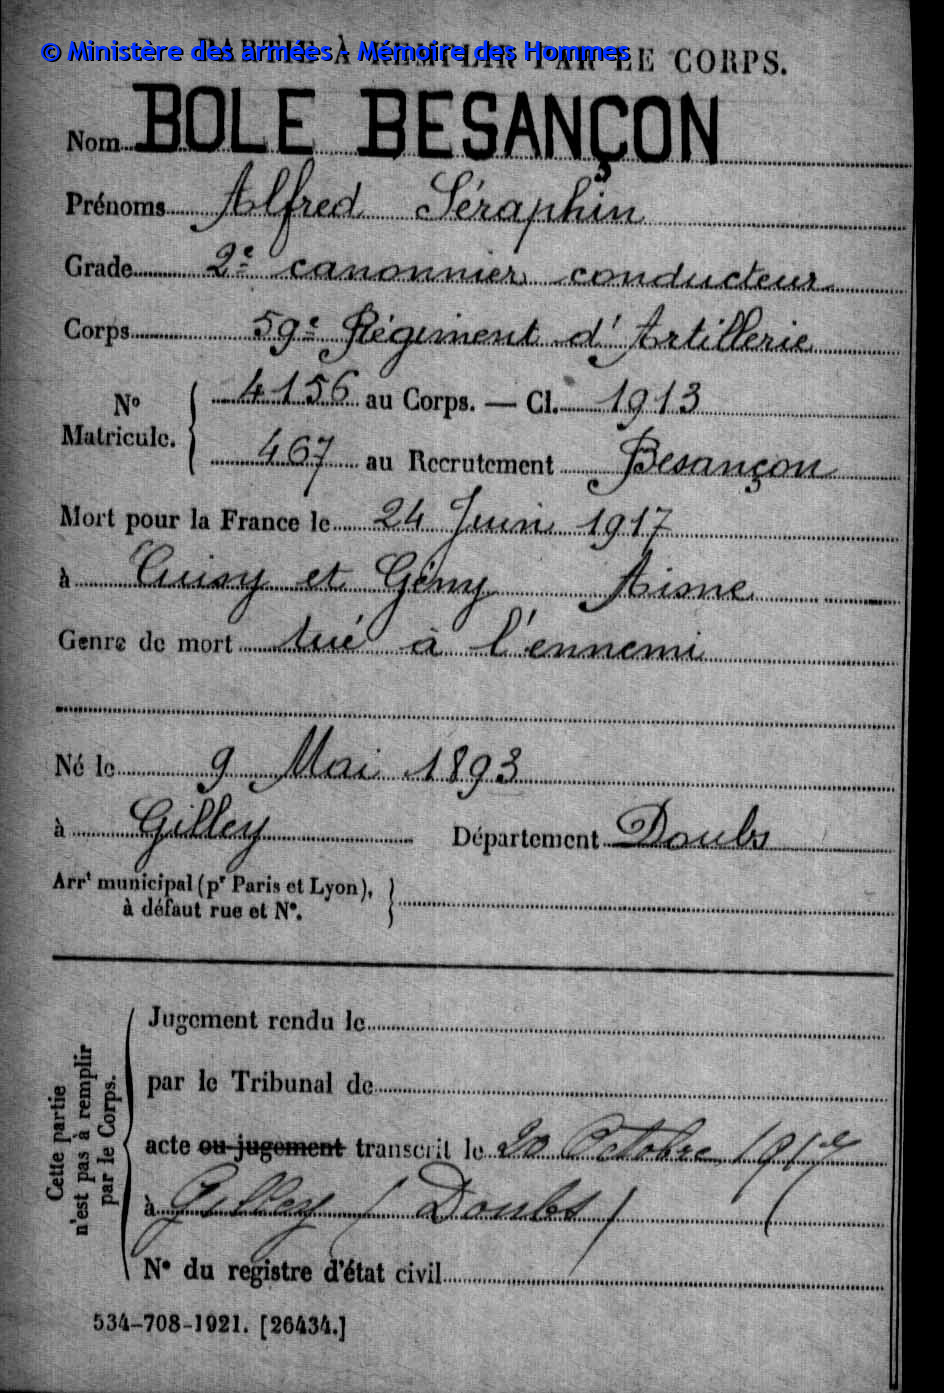 © Ministère des armées - Mémoire des Hommes
PARTIE À REMPLIR PAR LE CORPS.
Nom BOLE BESANÇON
Prénoms Alfred Séraphin
Grade 2e canonnier conducteur
Corps 59e Régiment d'Artillerie
No Matricule. { 4156 au Corps. — Cl. 1913
467 au Recrutement Besançon
Mort pour la France le 24 Juin 1917
à Cuisy et Gény Aisne
Genre de mort tué à l'ennemi
Né le 9 Mai 1893
à Gilley Département Doubs
Arrt municipal (pr Paris et Lyon),
à défaut rue et No.
Cette partie
n'est pas à remplir
par le Corps.
Jugement rendu le
par le Tribunal de
acte ou jugement transcrit le 20 Octobre 1917
à Gilley (Doubs)
No du registre d'état civil
534-708-1921. [26434.]